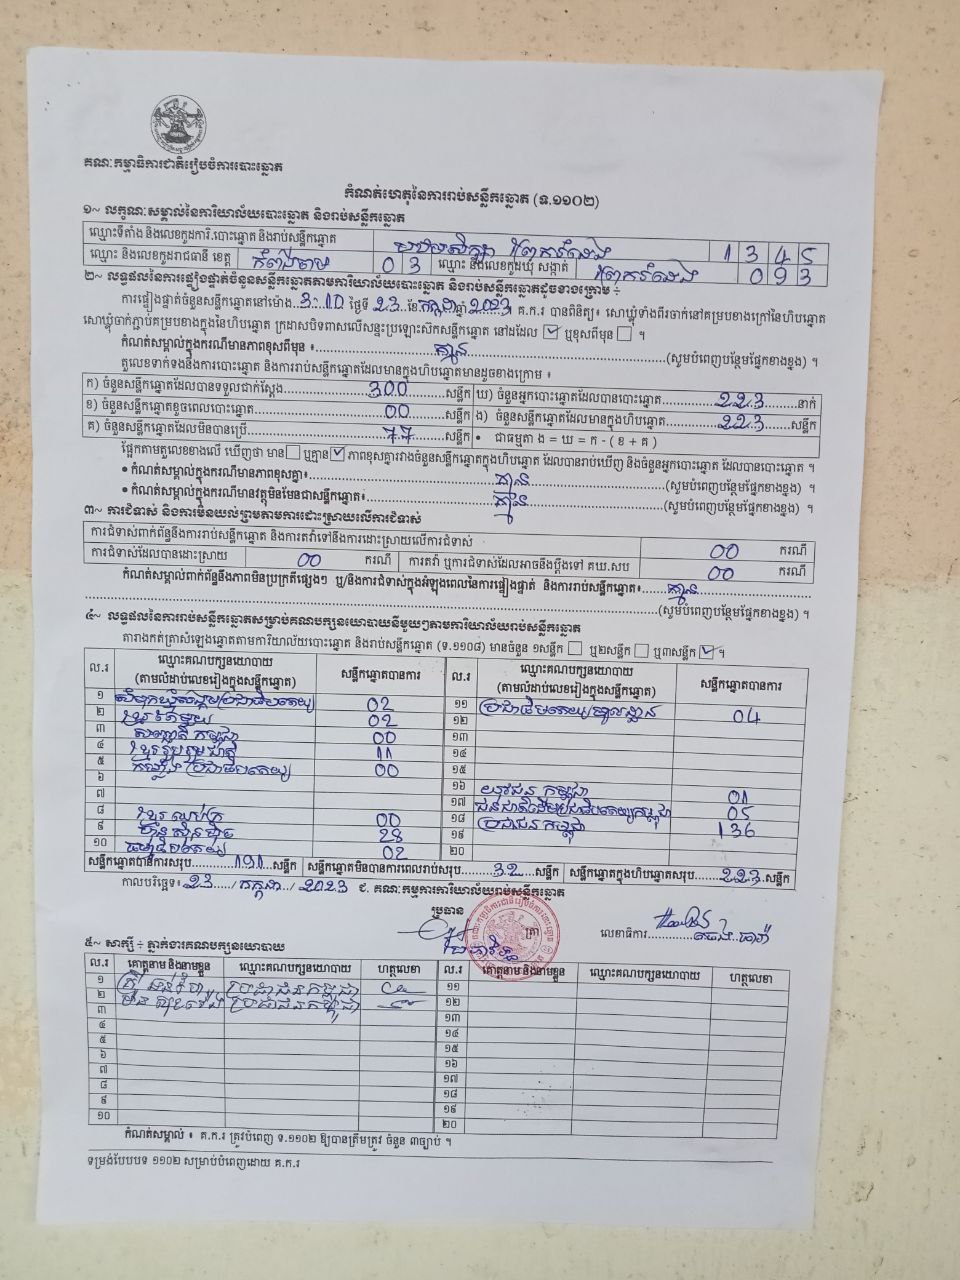 គណៈកម្មាធិការជាតិរៀបចំការបោះឆ្នោត
កំណត់ហេតុនៃការរាប់សន្លឹកឆ្នោត (ទ.១១០២)
១~ លក្ខណៈសម្គាល់នៃការិយាល័យបោះឆ្នោត និងរាប់សន្លឹកឆ្នោត
ឈ្មោះទីតាំង និងលេខកូដការិ.បោះឆ្នោត និងរាប់សន្លឹកឆ្នោត 1 3 4 5
ឈ្មោះ និងលេខកូដរាជធានី ខេត្ត កំពង់ចាម 0 3 ឈ្មោះ និងលេខកូដឃុំ សង្កាត់ 0 9 3
២~ លទ្ធផលនៃការផ្ទៀងផ្ទាត់ចំនួនសន្លឹកឆ្នោតតាមការិយាល័យបោះឆ្នោត និងរាប់សន្លឹកឆ្នោតដូចខាងក្រោម ÷
ការផ្ទៀងផ្ទាត់ចំនួនសន្លឹកឆ្នោតនៅម៉ោង 3:10 ថ្ងៃទី 23 ខែ កក្កដា ឆ្នាំ 2023 គ.ក.រ បានពិនិត្យ៖ សោឃ្លុំទាំងពីរចាក់នៅគម្របខាងក្រៅនៃហិបឆ្នោត
សោឃ្លុំចាក់ភ្ជាប់គម្របខាងក្នុងនៃហិបឆ្នោត ក្រដាសបិទពាសលើសន្ទះប្រឡោះសិកសន្លឹកឆ្នោត នៅដដែល ☑ ឬខុសពីមុន ☐ ។
កំណត់សម្គាល់ក្នុងករណីមានភាពខុសពីមុន ៖ គ្មាន (សូមបំពេញបន្ថែមផ្នែកខាងខ្នង) ។
តួលេខទាក់ទងនឹងការបោះឆ្នោត និងការរាប់សន្លឹកឆ្នោតដែលមានក្នុងហិបឆ្នោតមានដូចខាងក្រោម ៖
ក) ចំនួនសន្លឹកឆ្នោតដែលបានទទួលជាក់ស្តែង 300 សន្លឹក ឃ) ចំនួនអ្នកបោះឆ្នោតដែលបានបោះឆ្នោត 223 នាក់
ខ) ចំនួនសន្លឹកឆ្នោតខូចពេលបោះឆ្នោត 00 សន្លឹក ង) ចំនួនសន្លឹកឆ្នោតដែលមានក្នុងហិបឆ្នោត 223 សន្លឹក
គ) ចំនួនសន្លឹកឆ្នោតដែលមិនបានប្រើ 77 សន្លឹក • ជាធម្មតា ង = ឃ = ក - ( ខ + គ )
ផ្អែកតាមតួលេខខាងលើ ឃើញថា មាន ☐ ឬគ្មាន ☑ ភាពខុសគ្នារវាងចំនួនសន្លឹកឆ្នោតក្នុងហិបឆ្នោត ដែលបានរាប់ឃើញ និងចំនួនអ្នកបោះឆ្នោត ដែលបានបោះឆ្នោត ។
• កំណត់សម្គាល់ក្នុងករណីមានភាពខុសគ្នា៖ គ្មាន (សូមបំពេញបន្ថែមផ្នែកខាងខ្នង) ។
• កំណត់សម្គាល់ក្នុងករណីមានវត្ថុមិនមែនជាសន្លឹកឆ្នោត៖ គ្មាន (សូមបំពេញបន្ថែមផ្នែកខាងខ្នង) ។
៣~ ការជំទាស់ និងការមិនយល់ព្រមតាមការដោះស្រាយលើការជំទាស់
ការជំទាស់ពាក់ព័ន្ធនឹងការរាប់សន្លឹកឆ្នោត និងការតវ៉ាទៅនឹងការដោះស្រាយលើការជំទាស់ 00 ករណី
ការជំទាស់ដែលបានដោះស្រាយ 00 ករណី ការតវ៉ា ឬការជំទាស់ដែលអាចនឹងប្តឹងទៅ គឃ.សប 00 ករណី
កំណត់សម្គាល់ពាក់ព័ន្ធនឹងភាពមិនប្រក្រតីផ្សេងៗ ឬ/និងការជំទាស់ក្នុងអំឡុងពេលនៃការផ្ទៀងផ្ទាត់ និងការរាប់សន្លឹកឆ្នោត៖ គ្មាន
(សូមបំពេញបន្ថែមផ្នែកខាងខ្នង) ។
៤~ លទ្ធផលនៃការរាប់សន្លឹកឆ្នោតសម្រាប់គណបក្សនយោបាយនីមួយៗតាមការិយាល័យរាប់សន្លឹកឆ្នោត
តារាងកត់ត្រាសំឡេងឆ្នោតតាមការិយាល័យបោះឆ្នោត និងរាប់សន្លឹកឆ្នោត (ទ.១១០៨) មានចំនួន ១សន្លឹក ☐ ឬ២សន្លឹក ☐ ឬ៣សន្លឹក ☑ ។
ល.រ ឈ្មោះគណបក្សនយោបាយ (តាមលំដាប់លេខរៀងក្នុងសន្លឹកឆ្នោត) សន្លឹកឆ្នោតបានការ ល.រ ឈ្មោះគណបក្សនយោបាយ (តាមលំដាប់លេខរៀងក្នុងសន្លឹកឆ្នោត) សន្លឹកឆ្នោតបានការ
១ សំបុកឃ្មុំសង្គមប្រជាធិបតេយ្យ 02 ១១ ប្រជាធិបតេយ្យមូលដ្ឋាន 04
២ ខ្មែរតែមួយ 02 ១២
៣ សញ្ជាតិកម្ពុជា 00 ១៣
៤ ខ្មែររួបរួមជាតិ 11 ១៤
៥ កម្លាំងប្រជាធិបតេយ្យ 00 ១៥
៦ ១៦ យុវជនកម្ពុជា 01
៧ ១៧ ជនជាតិដើមប្រជាធិបតេយ្យកម្ពុជា 05
៨ ខ្មែរឈប់ក្រ 00 ១៨ ប្រជាជនកម្ពុជា 136
៩ ហ៊្វុនស៊ិនប៉ិច 28 ១៩
១០ ធម្មាធិបតេយ្យ 02 ២០
សន្លឹកឆ្នោតបានការសរុប 191 សន្លឹក សន្លឹកឆ្នោតមិនបានការពេលរាប់សរុប 32 សន្លឹក សន្លឹកឆ្នោតក្នុងហិបឆ្នោតសរុប 223 សន្លឹក
កាលបរិច្ឆេទ៖ 23 / កក្កដា / 2023 ជ. គណៈកម្មការការិយាល័យរាប់សន្លឹកឆ្នោត
ប្រធាន ត្រា លេខាធិការ
៥~ សាក្សី ÷ ភ្នាក់ងារគណបក្សនយោបាយ
ល.រ គោត្តនាម និងនាមខ្លួន ឈ្មោះគណបក្សនយោបាយ ហត្ថលេខា ល.រ គោត្តនាម និងនាមខ្លួន ឈ្មោះគណបក្សនយោបាយ ហត្ថលេខា
១ ប្រជាជនកម្ពុជា ១១
២ ប្រជាជនកម្ពុជា ១២
៣ ១៣
៤ ១៤
៥ ១៥
៦ ១៦
៧ ១៧
៨ ១៨
៩ ១៩
១០ ២០
កំណត់សម្គាល់ ៖ គ.ក.រ ត្រូវបំពេញ ទ.១១០២ ឱ្យបានត្រឹមត្រូវ ចំនួន ៣ច្បាប់ ។
ទម្រង់បែបបទ ១១០២ សម្រាប់បំពេញដោយ គ.ក.រ